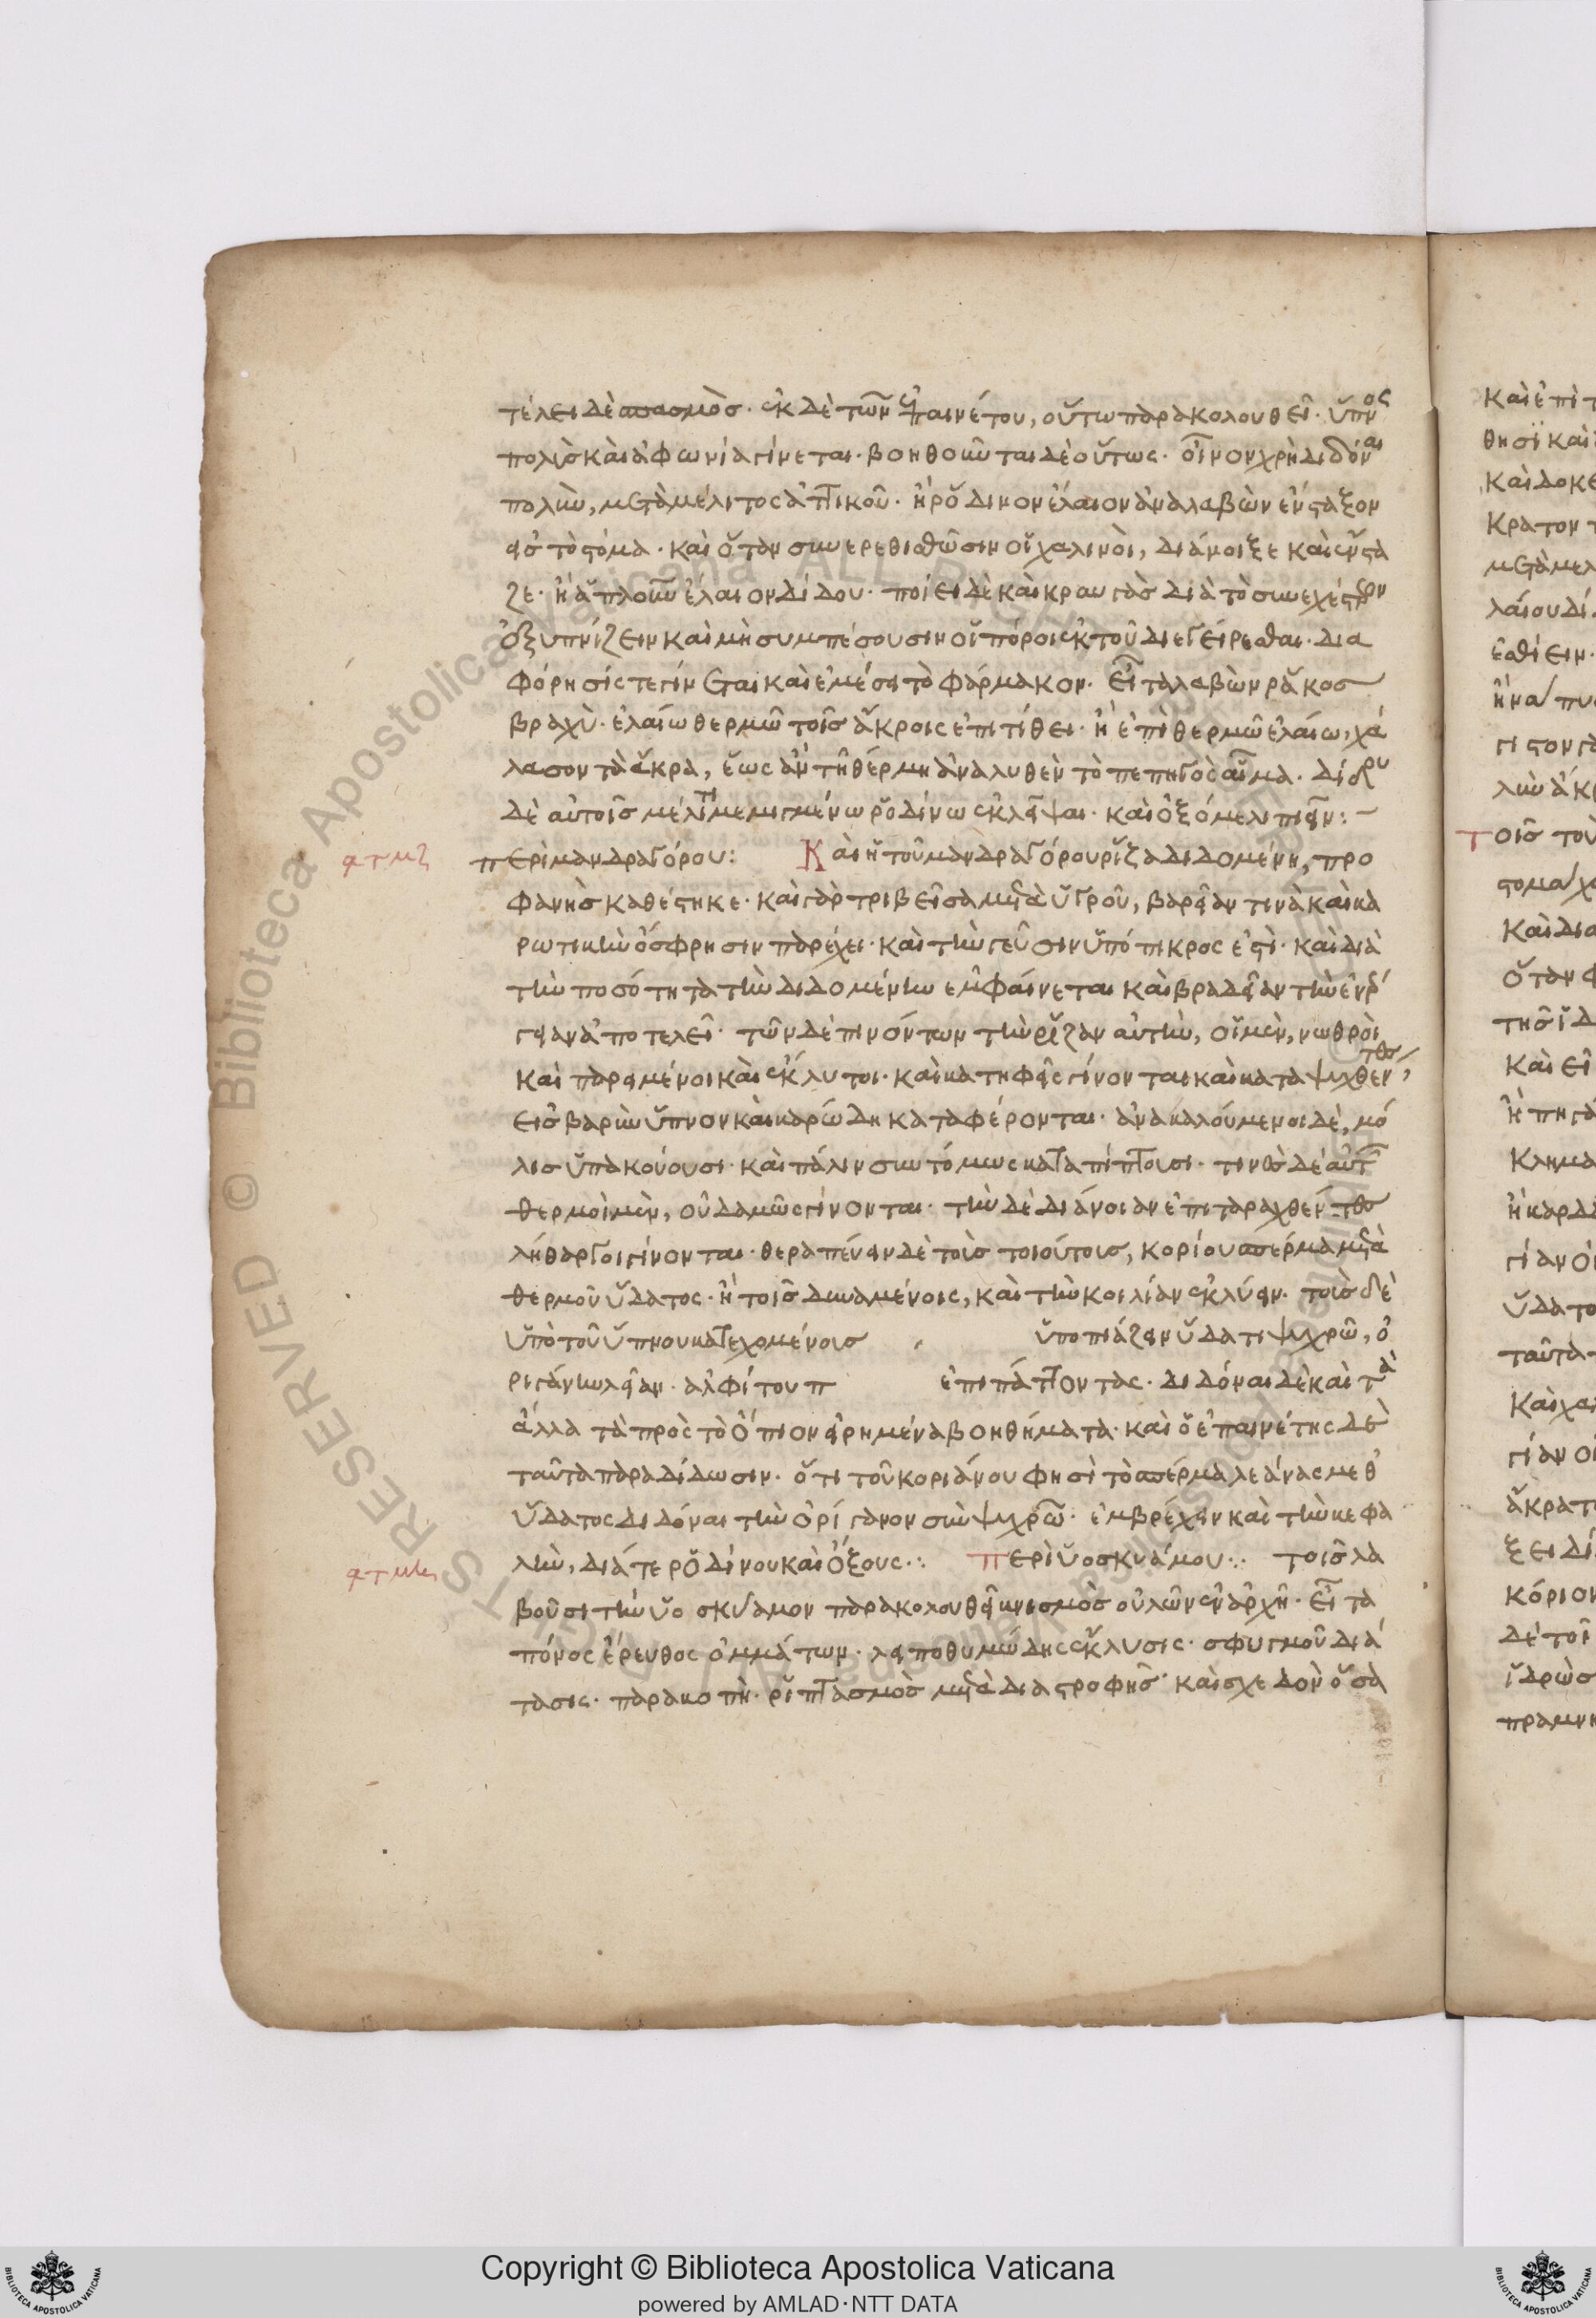 τέλει δὲ σπασμὸσ. ἐκ δὲ τῶν ἐπαινέτου, οὕτω παρακολουθεῖ. ὕπνος
πολὺσ καὶ ἀφωνία γίνεται. βοηθοῦνται δὲ οὕτως. οἶνον χρὴ διδόναι
πολὺν, μετὰ μέλιτος ἀττικοῦ. ἢ ῥόδινον ἔλαιον ἀναλαβὼν ἔνσταξον
εἰσ τὸ στόμα. καὶ ὅταν συνερεθισθῶσιν οἱ χαλινοὶ, διάνοιξε καὶ ἔνστα
ζε. ἢ ἁπλοῦν ἔλαιον δίδου. ποίει δὲ καὶ κραυγὰσ διὰ τὸ συνεχέστερον
ἐξυπνίζειν καὶ μὴ συμπέσουσιν οἱ πόροι ἐκ τοῦ διεγείρεσθαι. δια
φόρησίς τε γίνεται καὶ ἐμέσει τὸ φάρμακον. εἶτα λαβὼν ῥάκοσ
βραχὺ. ἐλαίω θερμῶ τοῖσ ἄκροις ἐπιτίθει. ἢ ἐπὶ θερμῶ ἐλαίω, χά
λασον τὰ ἄκρα, ἕως ἂν τῆ θέρμη ἀναλυθὲν τὸ πεπηγὸς αἷμα. δίδου
δὲ αὐτοῖσ μέλιτι μεμιγμένω ῥοδίνω ἐκλεῖψαι. καὶ ὀξόμελι πιεῖν:
φτμζ περὶ μανδραγόρου: Καὶ ἡ τοῦ μανδραγόρου ῥίζα διδομένη, προ
φανὴσ καθέστηκε. καὶ γὰρ τριβεῖσα μετὰ ὑγροῦ, βαρεῖαν τινὰ καὶ κα
ρωτικὴν ὄσφρησιν παρέχει. καὶ τὴν γεῦσιν ὑπόπικρος ἐστὶ. καὶ διὰ
τὴν ποσότητα τὴν διδομένην ἐμφαίνεται καὶ βραδεῖαν τὴν ἐνέρ
γειαν ἀποτελεῖ. τῶν δὲ πινόντων τὴν ῥίζαν αὐτὴν, οἱ μὲν, νωθροὶ
καὶ παρειμένοι καὶ ἔκλυτοι. καὶ κατηφεῖς γίνονται καὶ καταψυχθέντες
εἰσ βαρὺν ὕπνον καὶ καρώδη καταφέρονται. ἀνακαλούμενοι δὲ, μό
λισ ὑπακούουσι. καὶ πάλιν συντόμως καταπίπτουσι. τινὲσ δὲ αὐτῶν
θερμοὶ μὲν, οὐδαμῶς γίνονται. τὴν δὲ διάνοιαν ἐπιταραχθέντεσ
λήθαργοι γίνονται. θεραπεύειν δὲ τοὺσ τοιούτουσ, κορίου σπέρμα μετὰ
θερμοῦ ὕδατος. ἢ τοῖσ δυναμένοις, καὶ τὴν κοιλίαν ἐκλύειν. τοὺσ δὲ
ὑπὸ τοῦ ὕπνου κατεχομένουσ ὑποπιάζειν ὕδατι ψυχρῶ, ὀ
ριγάνην λείαν. ἀλφίτου π ἐπιπάττοντας. διδόναι δὲ καὶ τὰ
ἄλλα τὰ πρὸς τὸ ὄπιον εἰρημένα βοηθήματα. καὶ ὁ ἐπαινέτης δὲ
ταῦτα παραδίδωσιν. ὅτι τοῦ κοριάνου φησὶ τὸ σπέρμα λεάνας μεθ
ὕδατος διδόναι τὴν ὀρίγανον σὺν ψυχρῶ. ἐμβρέχειν καὶ τὴν κεφα
φτμη λὴν, διά τε ῥοδίνου καὶ ὄξους. περὶ ὑοσκυάμου. τοῖσ λα
βοῦσι τὴν ὑοσκύαμον παρακολουθεῖ κνισμὸσ οὐλῶν ἐν ἀρχῆ. εἶτα
πόνος ἔρευθος ὀμμάτων. λειποθυμώδης ἔκλυσις. σφυγμοῦ διά
τασις. παρακοπὴ. ῥιπτασμὸσ μετὰ διαστροφῆσ. καὶ σχεδὸν ὅσα
Copyright © Biblioteca Apostolica Vaticana
powered by AMLAD·NTT DATA